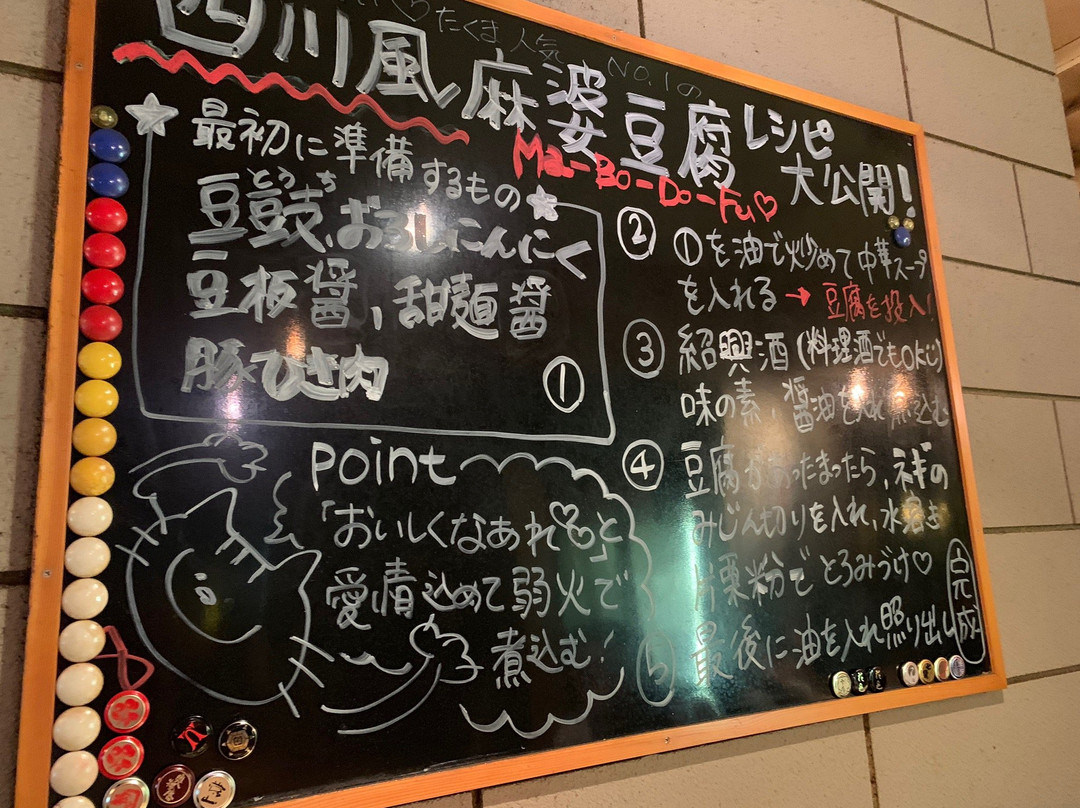 たくま人気
NO.1の
四川風麻婆豆腐レシピ
大公開!
Ma-Bo-Do-Fu♡
☆最初に準備するもの☆
とうち
豆鼓、おろしにんにく
豆板醤、甜麺醤
豚ひき肉
①
② ①を油で炒めて中華スープ
を入れる→豆腐を投入!
③ 紹興酒(料理酒でもOK)
味の素、醤油を入れ煮込む
④ 豆腐があったまったら、ネギの
みじん切りを入れ、水溶き
片栗粉でとろみづけ♡
⑤ 最後に油を入れ照り出し
完成
point
「おいしくなあれ♡」と
愛情込めて弱火で
煮込む!